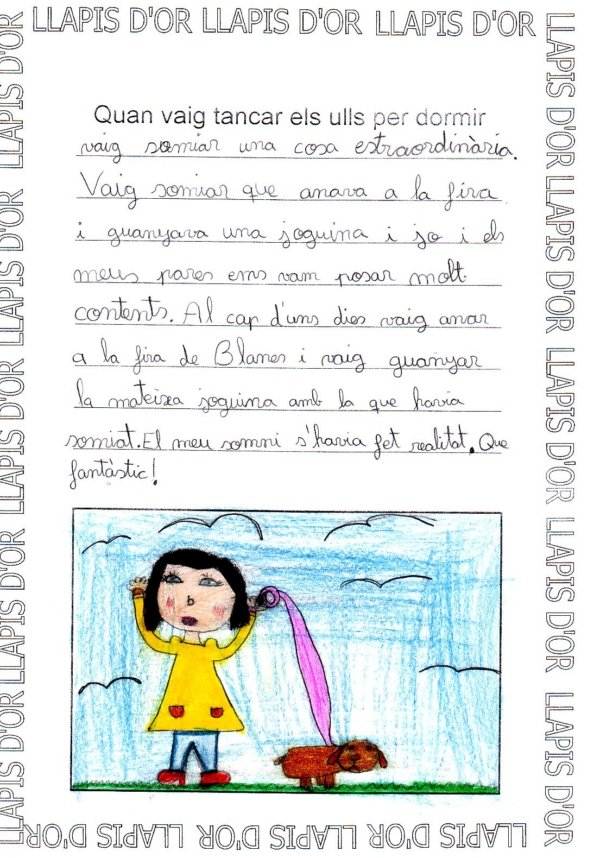 LLAPIS D'OR LLAPIS D'OR LLAPIS D'OR
Quan vaig tancar els ulls per dormir
vaig somiar una cosa extraordinària.
Vaig somiar que anava a la fira
i guanyava una joguina i jo i els
meus pares ens vam posar molt
contents. Al cap d'uns dies vaig anar
a la fira de Blanes i vaig guanyar
la mateixa joguina amb la que havia
somiat. El meu somni s'havia fet realitat. Que
fantàstic!
LLAPIS D'OR LLAPIS D'OR LLAPIS D'OR LLAPIS D'OR LLAPIS D'OR
LLAPIS D'OR LLAPIS D'OR LLAPIS D'OR LLAPIS D'OR LLAPIS D'OR
LLAPIS D'OR LLAPIS D'OR LLAPIS D'OR